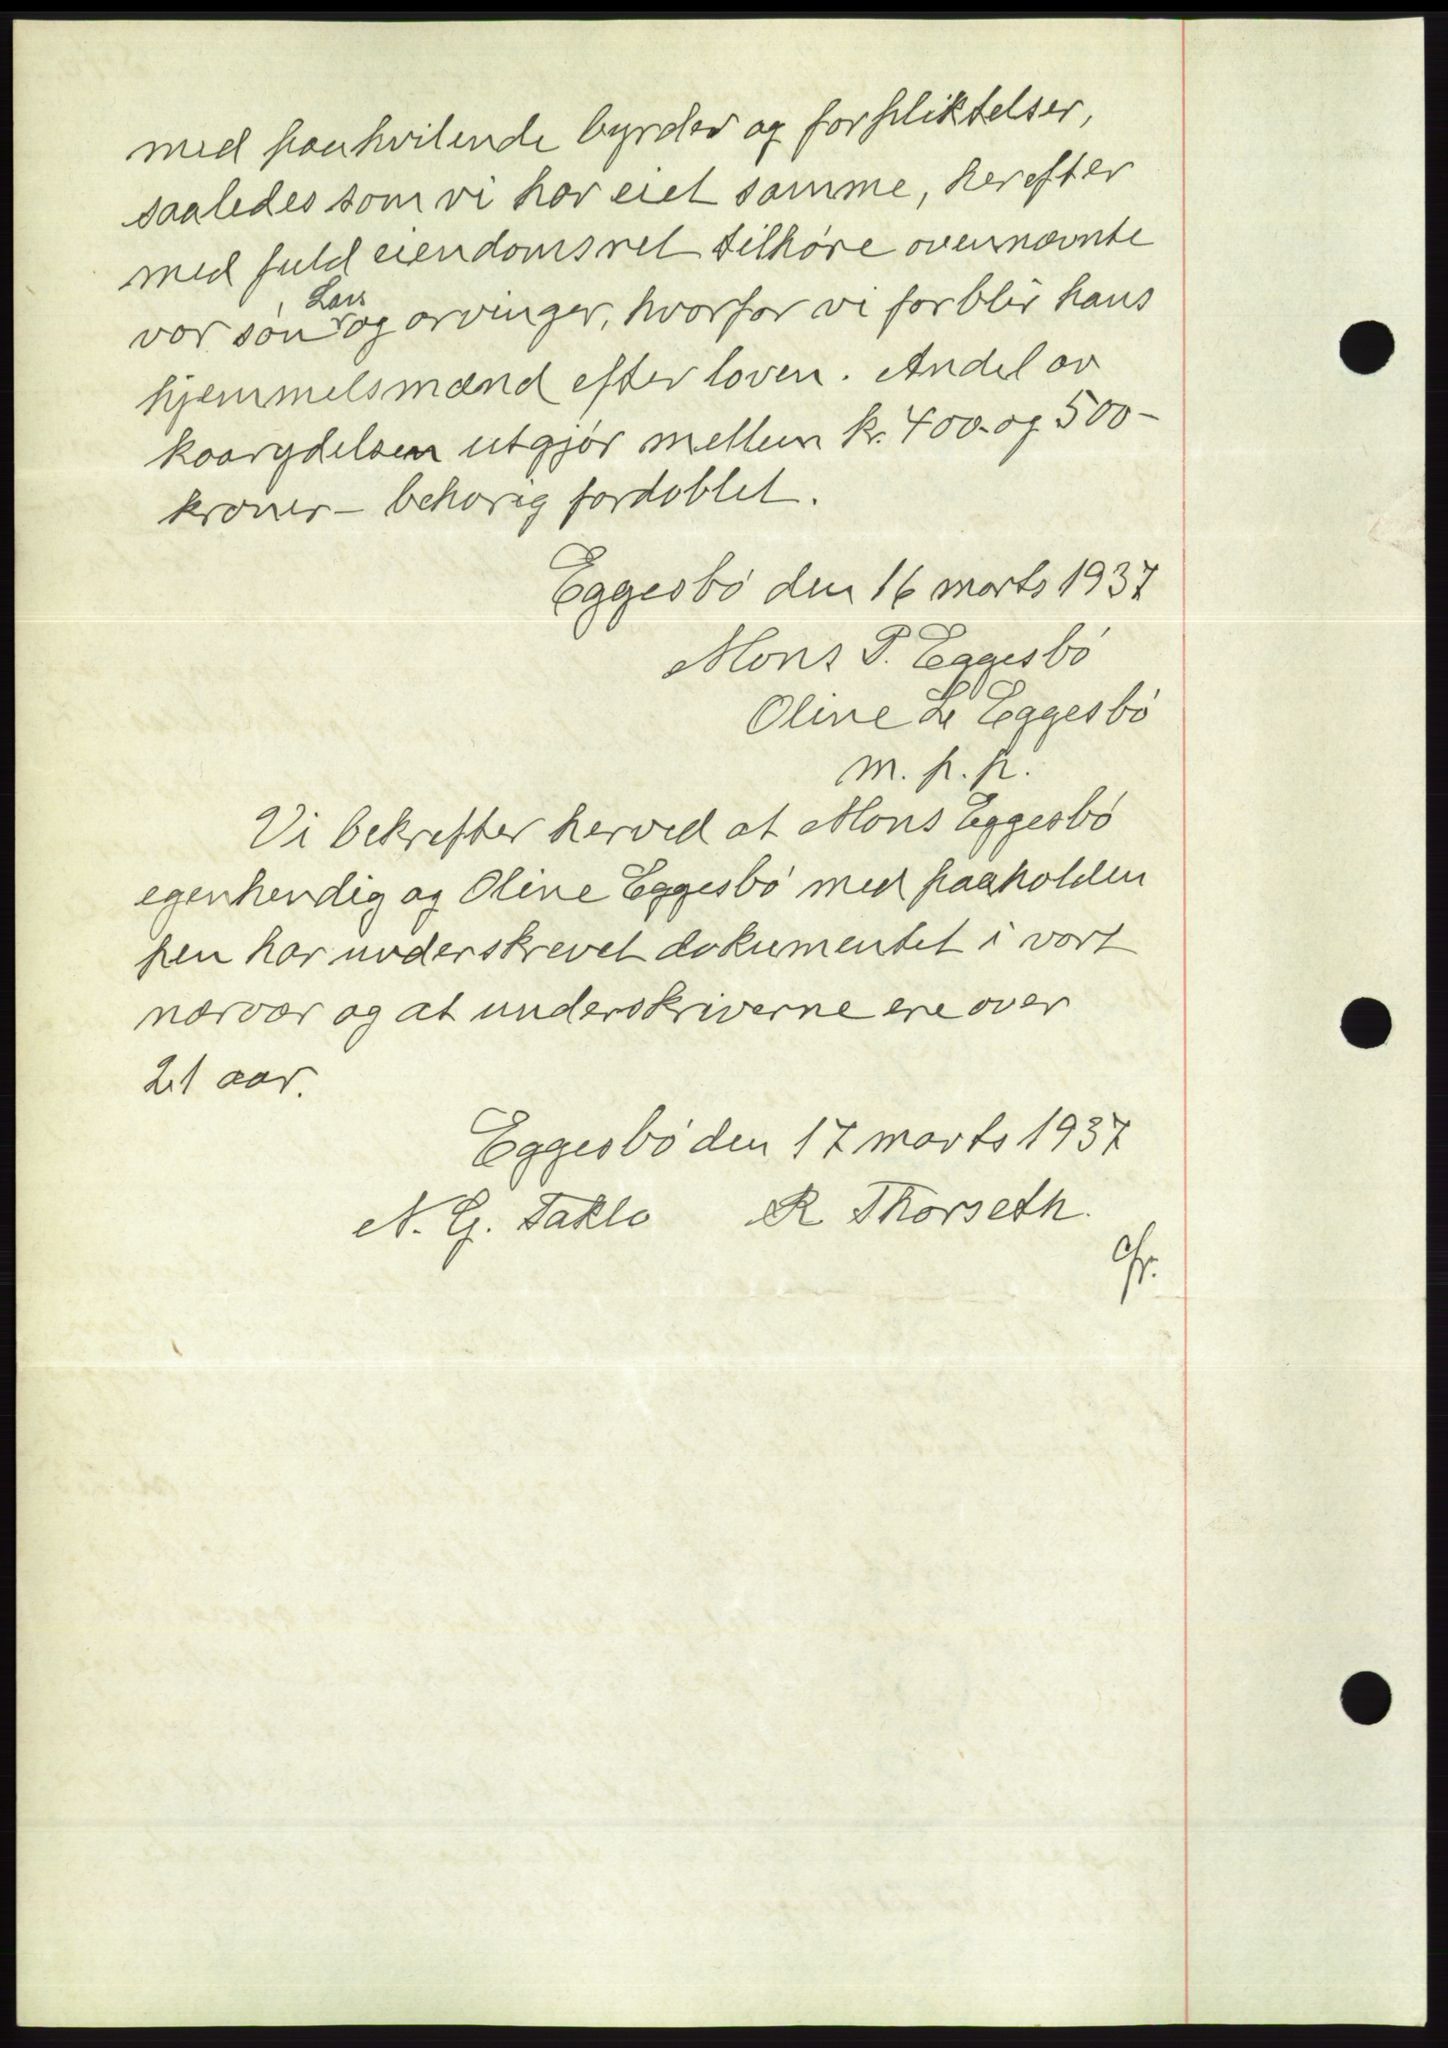 med paahvilende byrder og forpliktelser,
saaledes som vi har eiet samme, herefter
med fuld eiendomsret tilhøre ovennævnte
vor søn Lars og arvinger, hvorfor vi forblir hans
hjemmelsmænd efter loven. Andel av
kaarydelsen utgjør mellem kr. 400.- og 500-
kroner - behørig fordoblet.
Eggesbø den 16 marts 1937
Mons P. Eggesbø
Oline L Eggesbø
m. p. p.
Vi bekrefter herved at Mons Eggesbø
egenhendig og Oline Eggesbø med paaholden
pen har underskrevet dokumentet i vort
nærvær og at underskriverne ere over
21 aar.
Eggesbø den 17 marts 1937
N. G. Taklo R Thorseth.